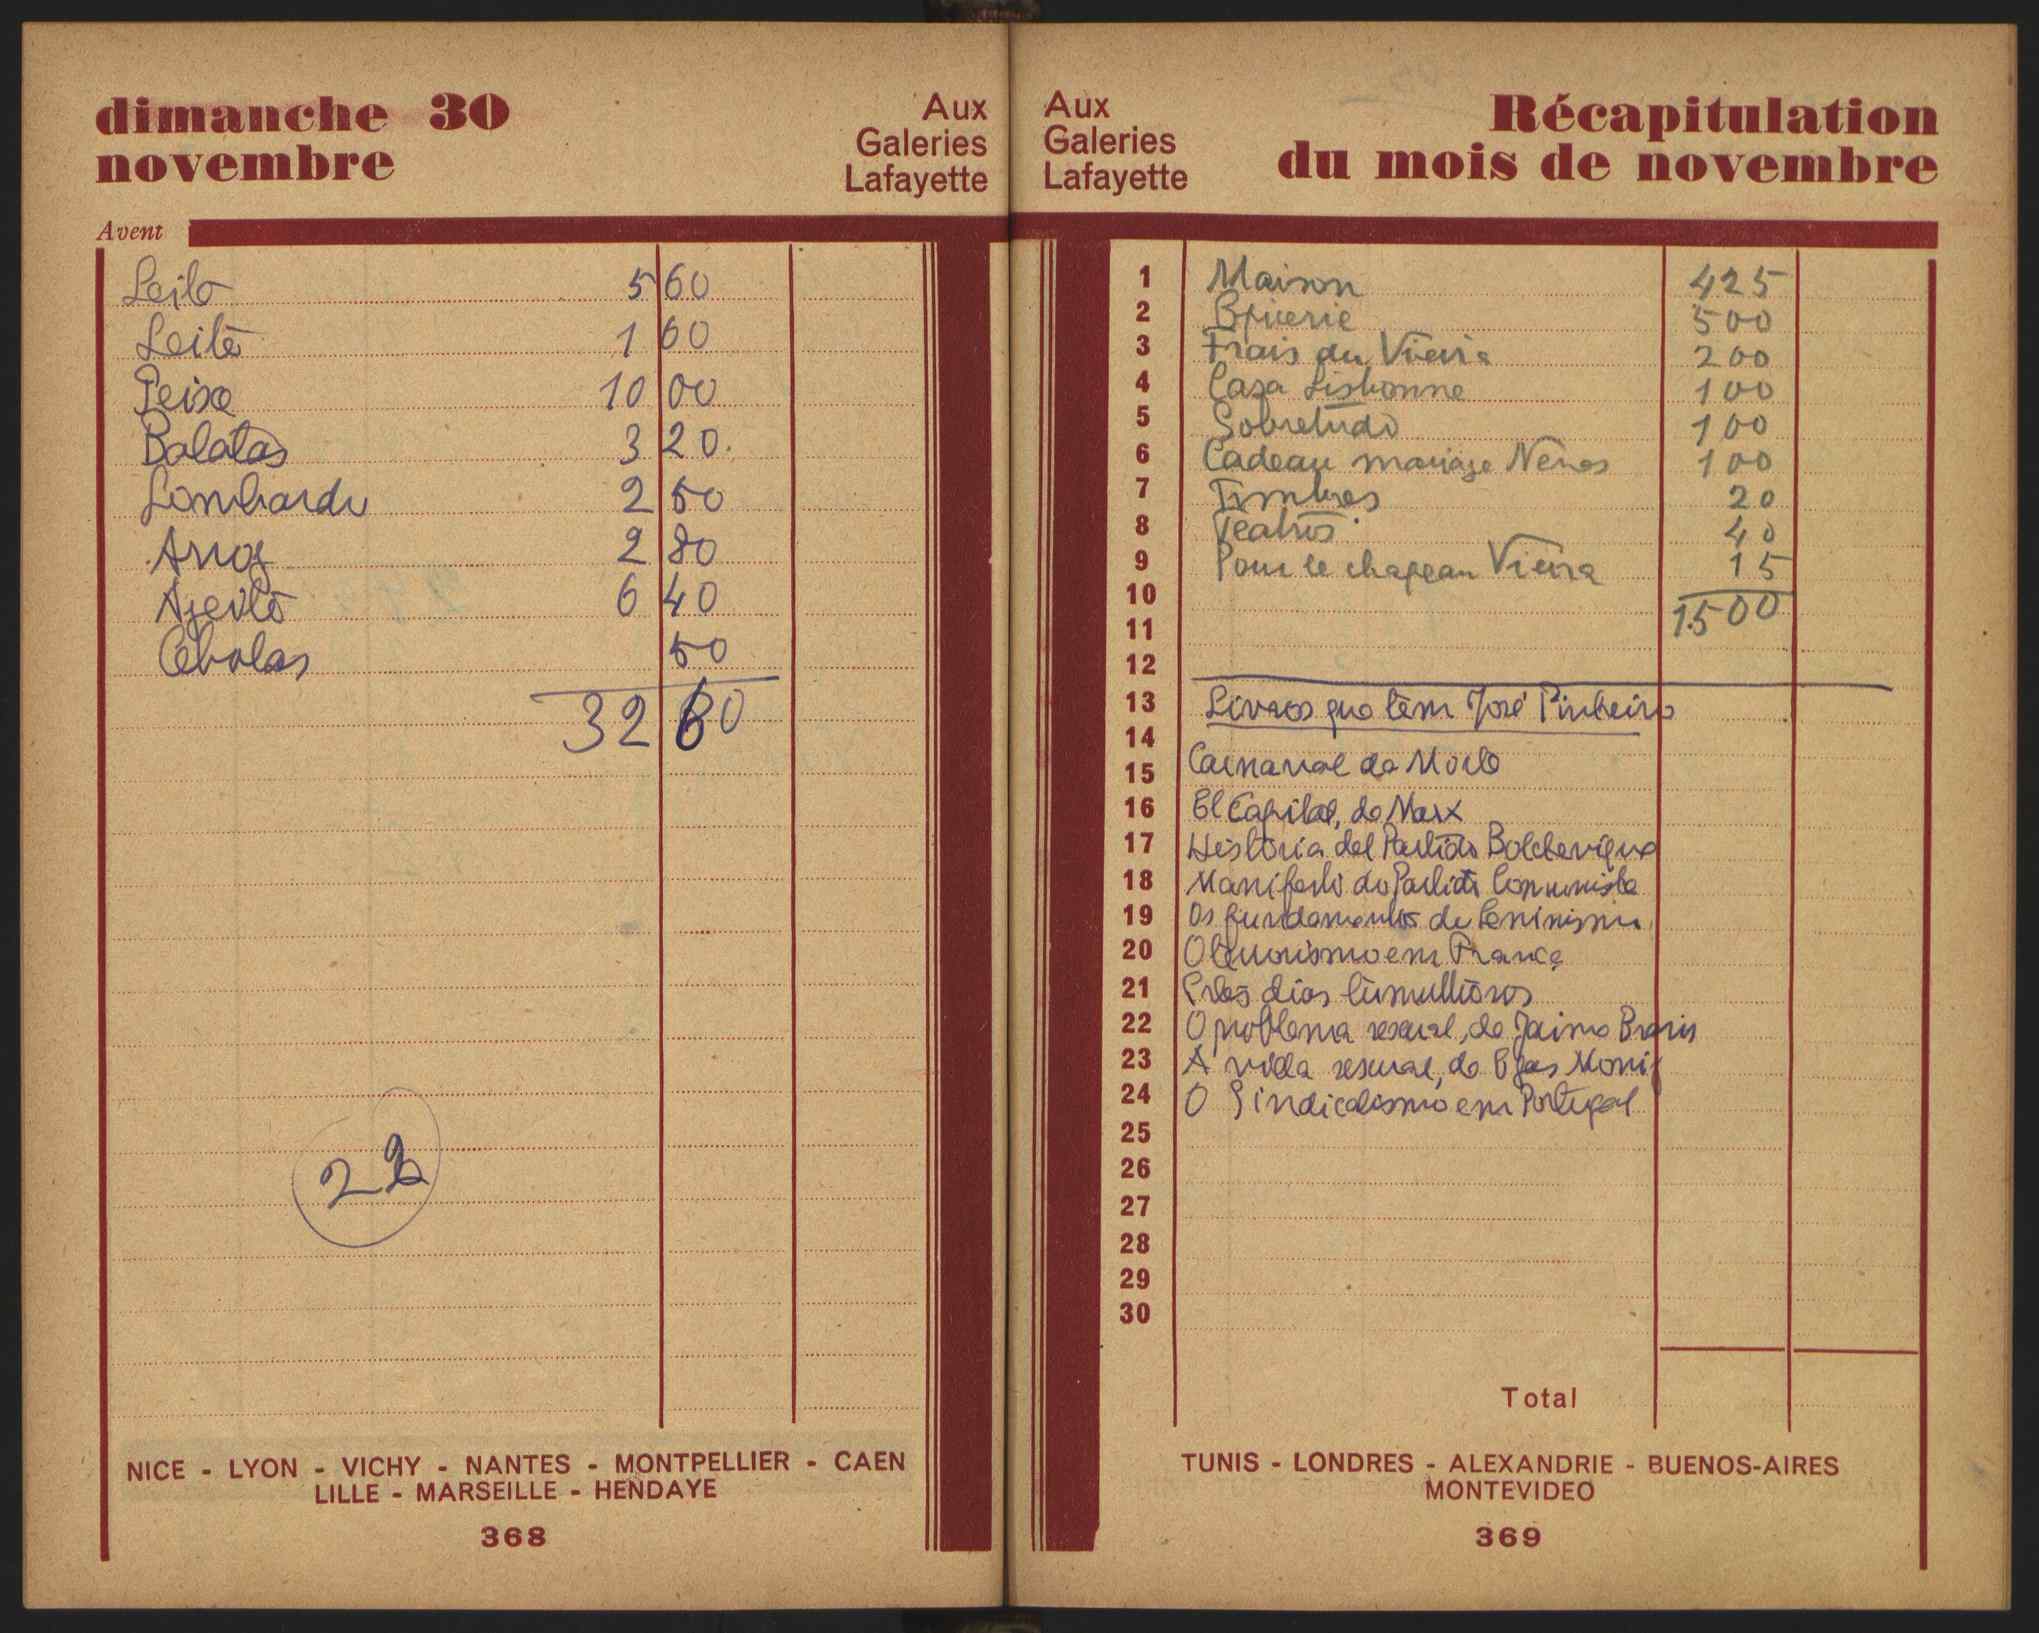 dimanche 30
novembre
Aux
Galeries
Lafayette
Avent
Leite 5 60
Leite 1 60
Peixe 10 00
Batatas 3 20.
Lombardo 2 50
Arroz 2 80
Azeite 6 40
Cebolas 50
32 60
22
NICE - LYON - VICHY - NANTES - MONTPELLIER - CAEN
LILLE - MARSEILLE - HENDAYE
368
Aux
Galeries
Lafayette
Récapitulation
du mois de novembre
1 Maison 425
2 Epicerie 500
3 Frais du Vieira 200
4 Casa Lisbonne 100
5 Sobretudo 100
6 Cadeau mariage Nenos 100
7 Timbres 20
8 Teatros 40
9 Pour le chapeau Vieira 15
10 1.500
11
12
13 Livros que tem José Pinheiro
14
15 Carnaval da Morte
16 El Capital, de Marx
17 Historia del Partido Bolchevique
18 Manifesto do Partido Comunista
19 Os fundamentos do Leninismo
20 O terrorismo em França
21 dias tumultuosos
22 O problema sexual, de Jaime Brasis
23 A vida sexual, de Egas Moniz
24 O Sindicalismo em Portugal
25
26
27
28
29
30
Total
TUNIS - LONDRES - ALEXANDRIE - BUENOS-AIRES
MONTEVIDEO
369